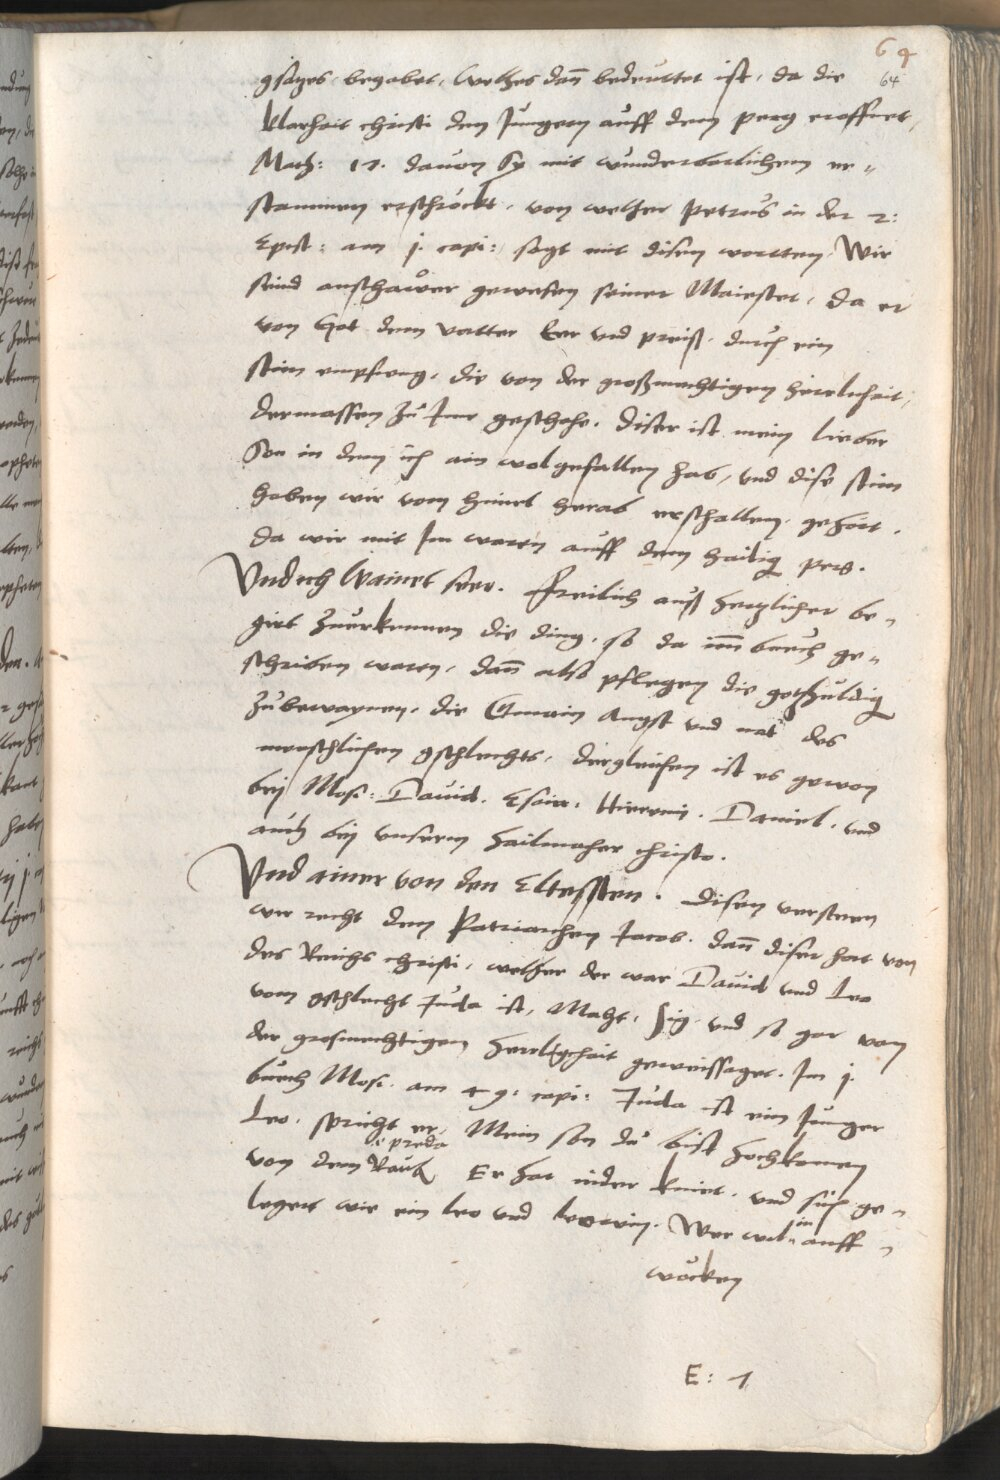 64
64
gsatzes begabet, welhes dañ bedeuttet ist, da die
klarhait christi den Jungern auff dem perg eroffnet,
Math: 17. davon sy mit wunderbarlichem er=
stannen erschröckt, von welher Petrus in der 2:
Epist: am j. capi: sagt mit disen wortten, Wir
seind anschawer gewesen seiner Maiestet, da er
von Got dem vatter Eer vnd preiß, durch ein
stim empfieng, die von der großmechtigen herrlichait,
dermassen zu Jme geschahe. Diser ist mein lieber
Son in dem ich ain wolgefallen hab, vnd dise stim
haben wir vom himel herab erschallen gehört.
da wir mit Jm waren auff dem hailig perg.
Vnd ich wainet seer. Freilich auß hertzlicher be=
girt zuerkennen die ding, so da im buech ge=
schriben waren, dañ also pflegen die gothuldig
zubewaynen, die Gmain angst vnd not des
menschlichen gschlechts, dergleichen ist es gewon
beij Mose: Dauid. Esaia. Hieremi. Daniel. vnd
auch beij vnserm hailmacher christo.
Vnd ainer von den Eltessten. Disen versteen
wir recht dem Patriarchen Jacob. dañ diser hat von
des Reichs christi, welher der war Dauid vnd Leo
vom gschlecht Juda ist, Macht, sig vnd so gar von
der grosmechtigen herrligchait geweissaget. Im j.
buech Mose am 49. capi: Juda ist ein Junger
Leo, spricht er, Mein son du bist hochkomen
e preda
von dem Raub Er hat nider kniet, vnd sich ge=
legert wie ein leo vnd leowin. Wer wil in auff=
wöcken
E: 1